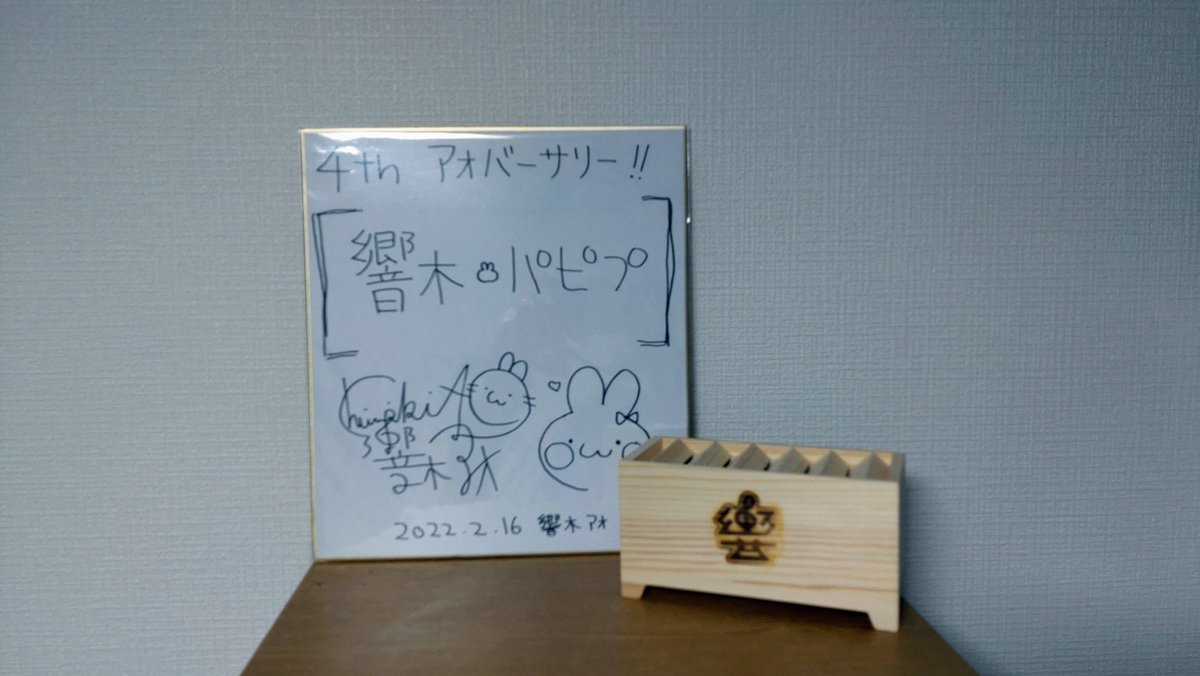 4th アオバーサリー!!
響木 パピプ
HibikiAo
響木アオ
2022.2.16 響木アオ
響